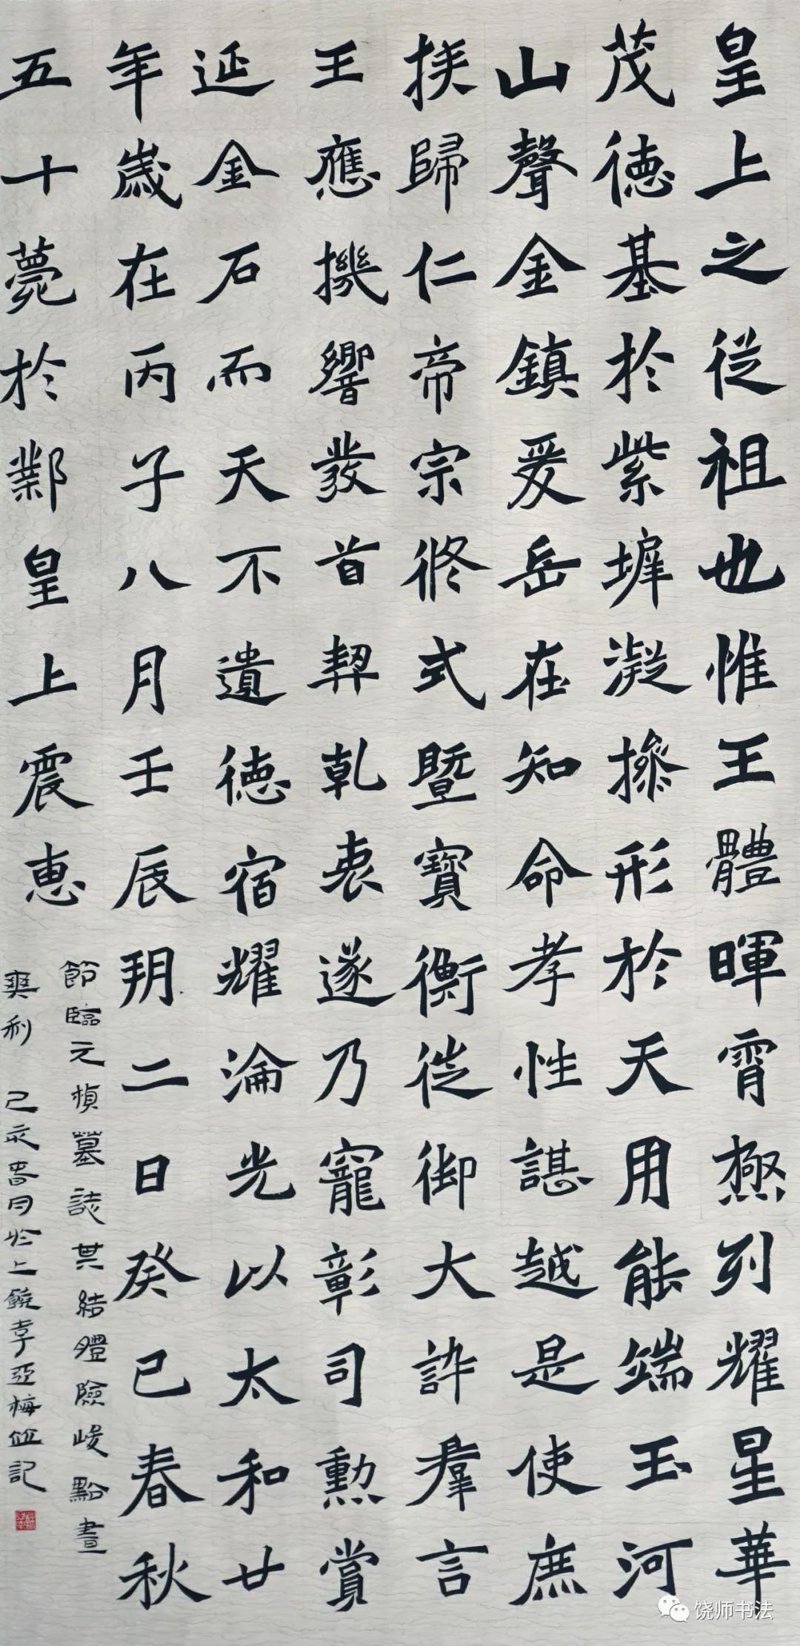 皇上之從祖也惟王體暉霄極列耀星華
茂德基於紫墀凝操形於天用能端玉河
山聲金鎮爰岳在知命孝性諶越是使庶
族歸仁帝宗攸式暨寶衡徙御大訴羣言
王應機響發首契乾衷遂乃寵彰司勳賞
延金石而天不遺德宿耀淪光以太和廿
年歲在丙子八月壬辰玥二日癸巳春秋
五十薨於鄴皇上震惠
節臨元楨墓誌其結體險峻點畫
爽利 己亥春月於上饒李亞梅並記
饶师书法